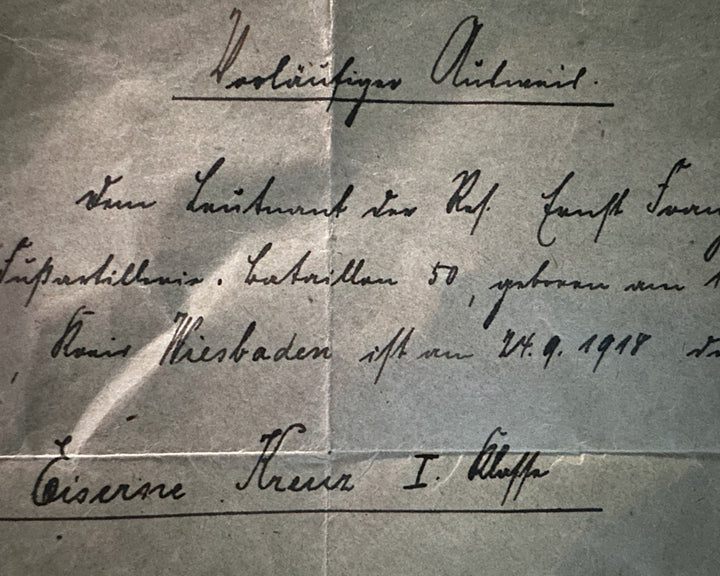 Vorläufiger Ausweis.
Dem Leutnant der Res. Ernst Franz
Fußartillerie. Bataillon 50, geboren am 1
, Kreis Wiesbaden ist am 24.9.1918 da
Eiserne Kreuz I. Klasse